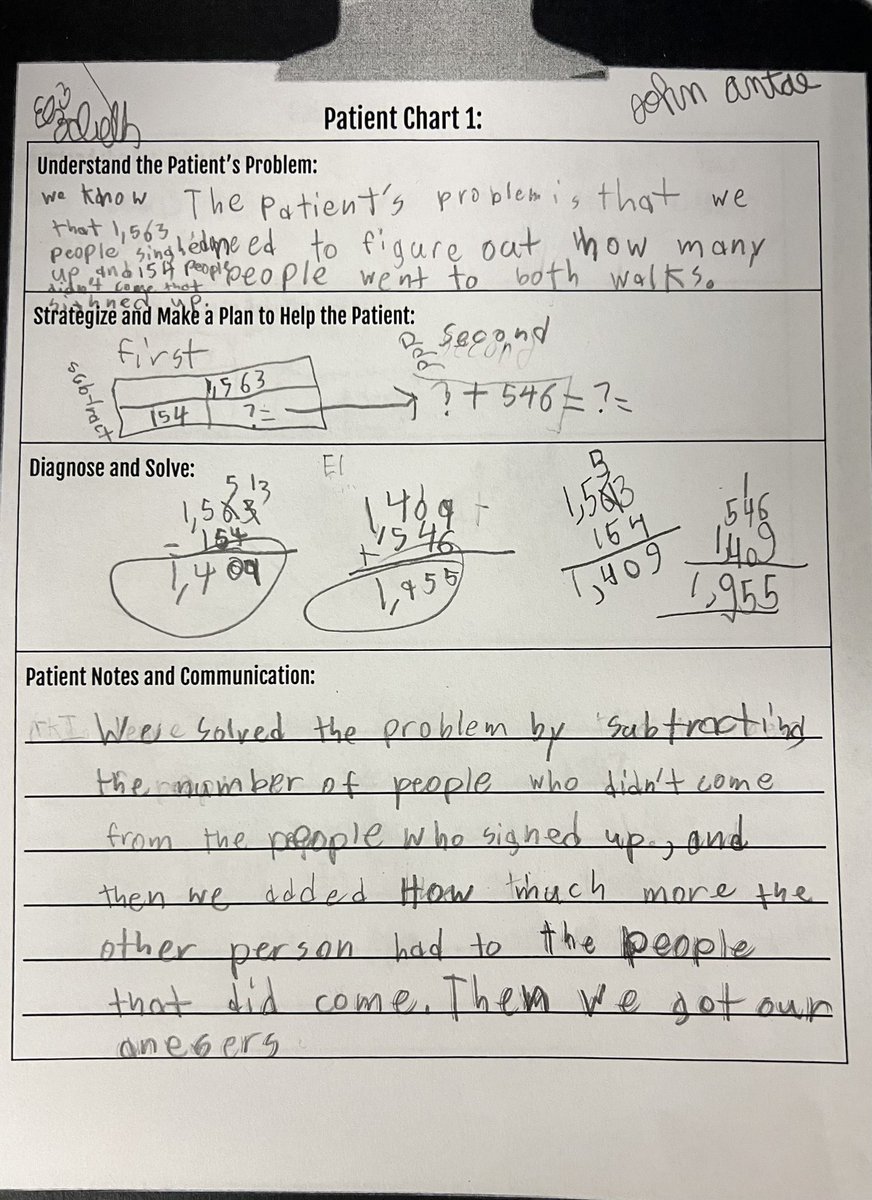 John antae
Patient Chart 1:
Understand the Patient's Problem:
we know
that 1,563
people
up and 154 people
didn't come that
sighned up.
The Patient's problem is that we
need to figure out how many
people went to both walks.
Strategize and Make a Plan to Help the Patient:
first
subtract
1,563
154 ?=
Second
? + 546 = ?=
Diagnose and Solve:
El
5 13
1,563
- 154
1,409
1,409
+ 546
1,955
5
1,563
154
1,409
1
546
1,409
1,955
Patient Notes and Communication:
We solved the problem by subtracting
the number of people who didn't come
from the people who signed up, and
then we added How much more the
other person had to the people
that did come. Then we got our
anesers